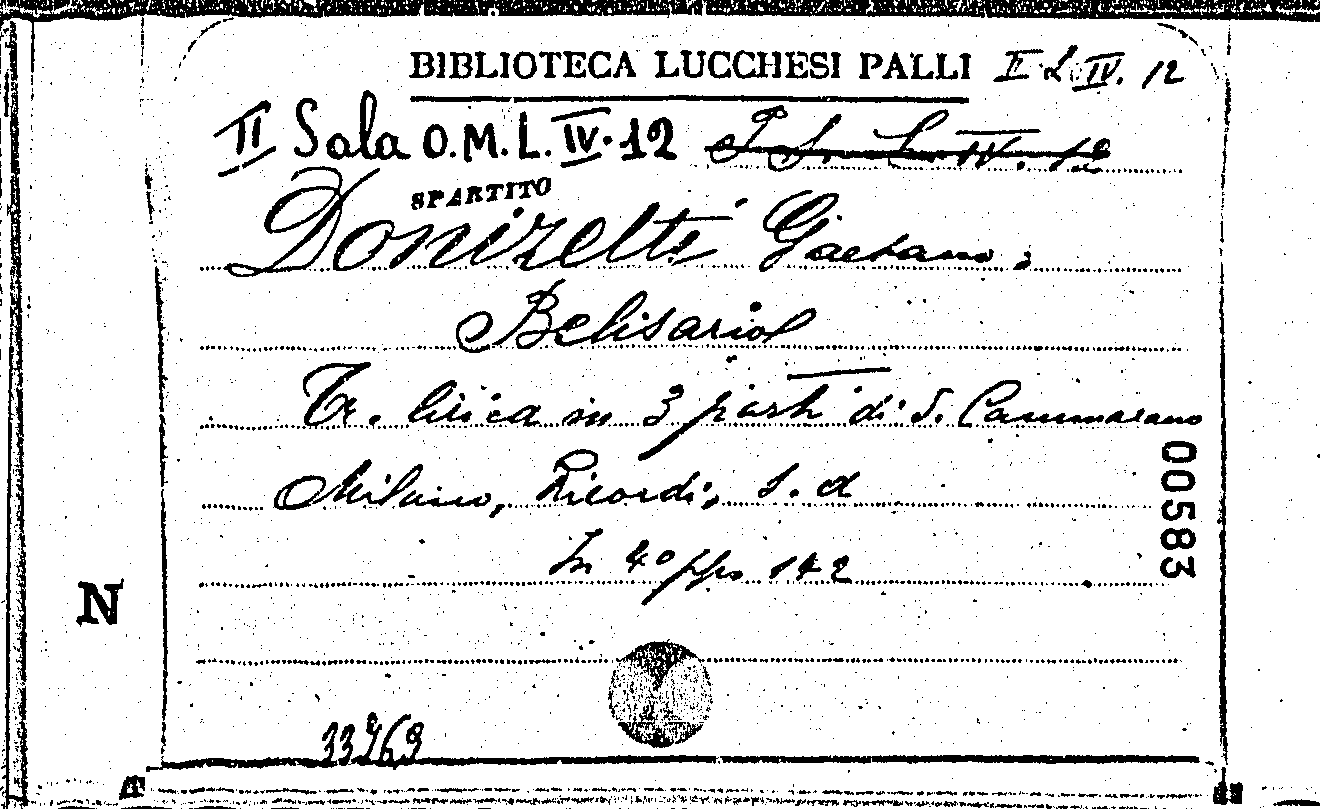 BIBLIOTECA LUCCHESI PALLI II L IV. 12
II Sala O.M.L. IV. 12 P. S. L. IV. 12
SPARTITO
Donizetti Gaetano:
Belisario
Tr. lirica in 3 parti di S. Cammarano
Milano, Ricordi, s. d
In 4º pp. 142
00583
N
33769